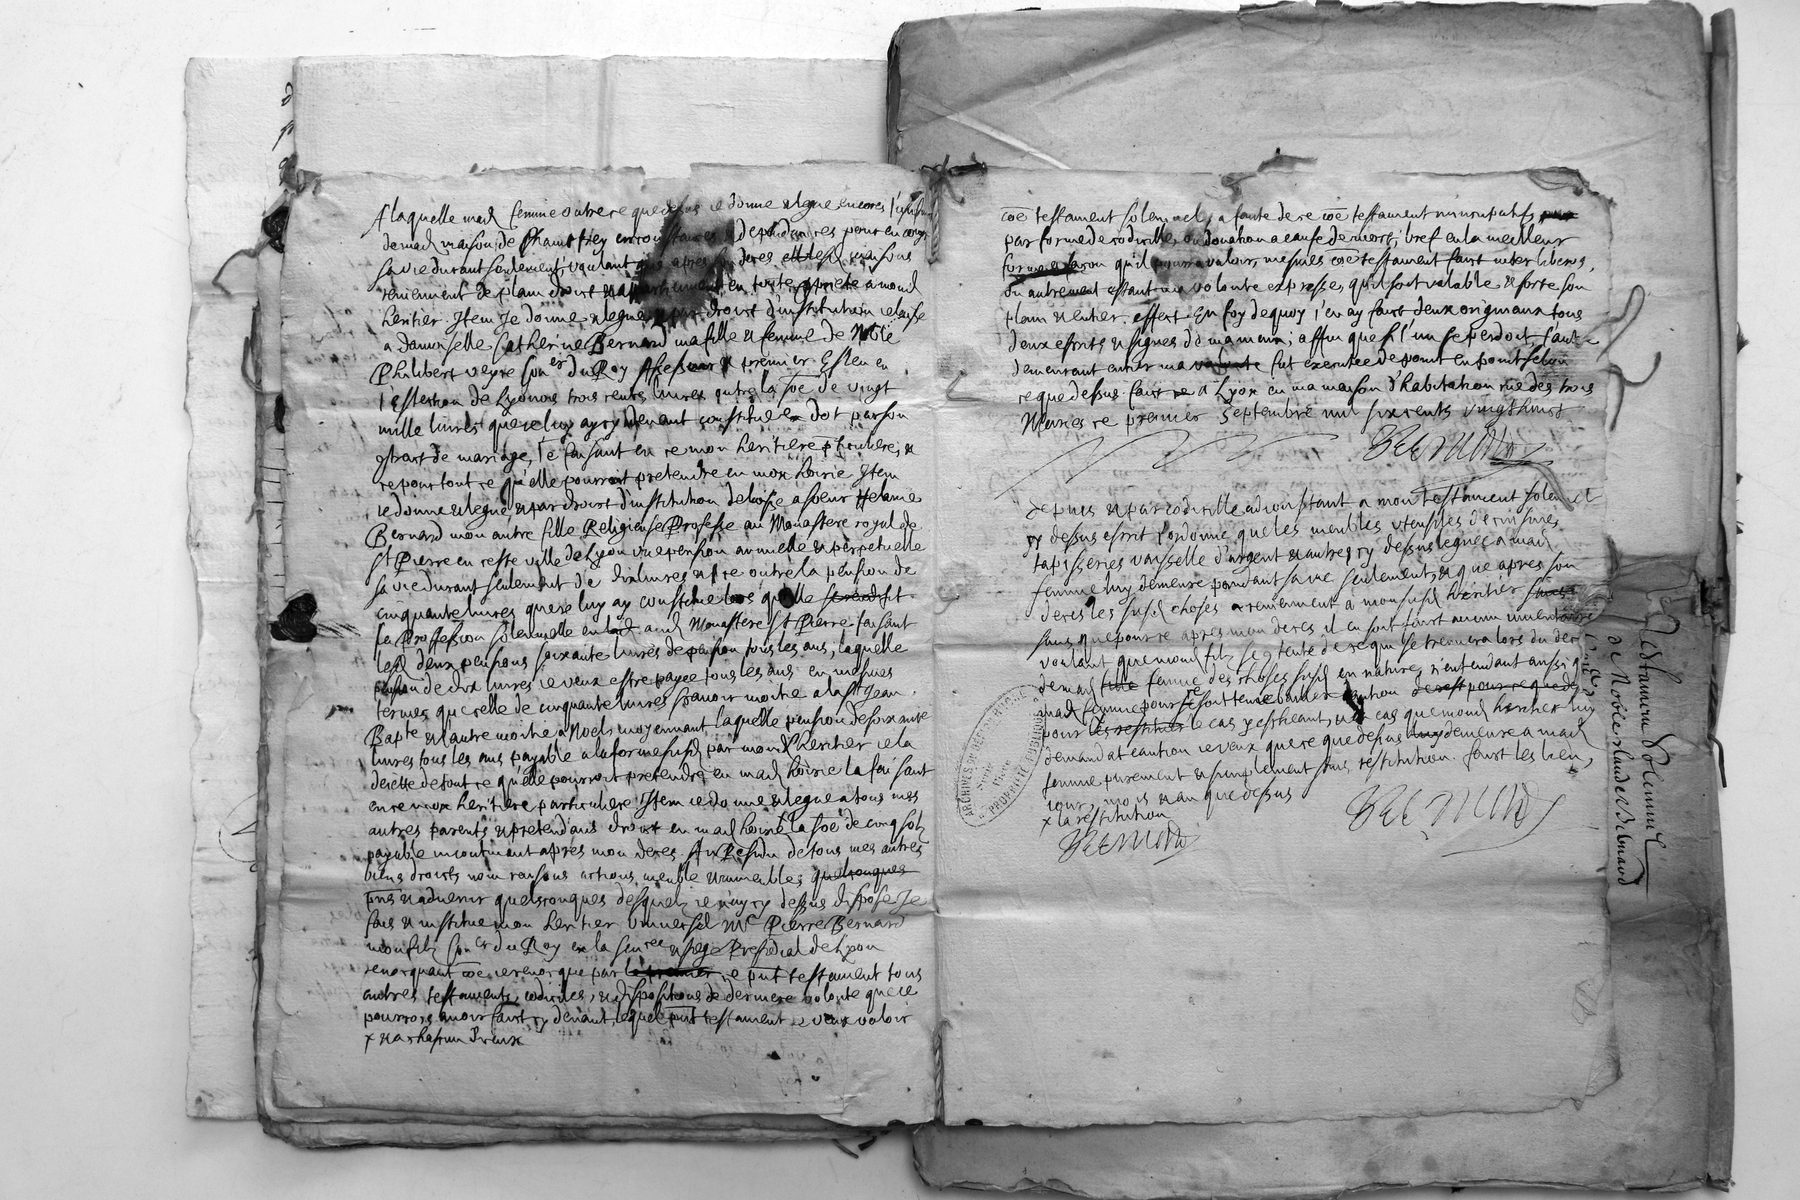 A laquelle mad femme outre ce que dessus ie donne & legue encores l'usufruict
de mad maison de Chamfrey circonstances & dependances pour en
sa vie durant seulement, voulant que apres son deces maisons
reviennent de plain droit & appartiennent en toute proprieté a mond
heritier. Item Je donne & legue & par droit d'institution delaisse
a Damoiselle Catherine Bernard ma fille & femme de Noble
Philibert Veyre Coner du Roy Assesseur & premier Esleu en
l'eslection de Lyonnois trois cents livres outre la soe de vingt
mille livres que ie luy ay cy devant constitué en dot par son
contract de mariage, la faisant en ce mon heritiere particuliere, &
ce pour tout ce qu'elle pourroit pretendre en mon hoirie. Item
ie donne & legue & par droit d'institution delaisse a soeur Helaine
Bernard mon autre fille Religieuse Professe au Monastere royal de
St Pierre en ceste ville de Lyon une pension annuelle & perpetuelle
sa vie durant seulement de dix livres & ce outre la pension de
cinquante livres que ie luy ay constitué lors qu'elle fit
sa Proffession solemnelle aud Monastere St Pierre faisant
lesd deux pensions soixante livres de pension tous les ans, laquelle
pension de dix livres ie veux estre payee tous les ans en mesmes
termes que celle de cinquante livres scavoir moitié a la St Jean
Bapte & l'autre moitié a Noel, moyennant laquelle pension de soixante
livres tous les ans payable a la forme susd par mond heritier ie la
de tout ce qu'elle pourroit pretendre en mad hoirie la faisant
en ce mon heritiere particuliere. Item ie donne & legue a tous mes
autres parents & pretendans droict en mad hoirie la soe de cinq solz
payable incontinant apres mon deces. Au Residu de tous mes autres
biens droits noms raisons actions, meuble & immeubles quelconques
pnts & advenir quelconques desquelz ie n'ay cy dessus disposé Je
fais & institue mon heritier universel Me Pierre Bernard
mon filz Coner du Roy en la Senecée & siege Presidial de Lyon
revocquant coe ie revocque par le premier ce pnt testament tous
autres testaments, codicilles, & dispositions de derniere volonté que ie
pourrois avoir faict cy devant, lequel pnt testament ie veux valoir
x & a chascun d'ceux
coe testament solemnel, a faute de ce coe testament nuncupatif,
par forme de codicille, ou donation a cause de mort, bref en la meilleur
forme & facon qu'il pourra valoir, mesmes coe testament faict inter liberos,
ou autrement estant ma volonté expresse qu'il soit valable & sorte son
plain & entier effect. En foy de quoy i'en ay faict deux originaux tous
deux escrits & signés de ma main, affin que si l'un se perdoit, l'autre
demeurant entier ma volonté fut executée de point en point selon
ce que dessus. Faict ce a Lyon en ma maison d'habitation rue des trois
Maries ce premier Septembre mil six cents vingt huict
Bernard
Depuis & par codicille adioustant a mon testament solemnel
cy dessus escrit i'ordonne que les meubles utensiles de cuisine,
tapisseries vaisselle d'argent & autres cy dessus leguez a mad
femme luy demeure pendant sa vie seulement, & que apres son
deces les susd choses reviennent a mon susd heritier
sans que pour ce apres mon deces il en soit faict aucun inventaire
voulant que mond filz se contente de ce qui se treuvera lors du deces
de mad femme des choses susd en nature, n'entendant aussi q
mad femme pour ce soit tenue bailler caution de
pour les restituer le cas y escheant, & au cas que mond heritier luy
demandat caution ie veux que ce que dessus demeure a mad
femme purement & simplement sans restitution. Faict les lieu,
iour, mois & an que dessus
x la restitution
Bernard
Bernard
ARCHIVES DU DEPT DU RHONE
PROPRIETE PUBLIQUE
Testament Solemnel
de Noble Claude Bernard